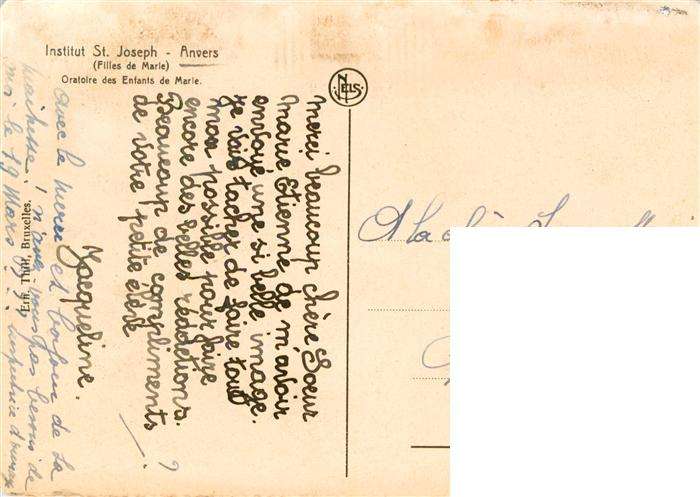 Institut St. Joseph - Anvers
(Filles de Marie)
Oratoire des Enfants de Marie.
NELS
Ern. Thill, Bruxelles.
Merci beaucoup chère Soeur
Marie Etienne de m'avoir
envoyé une si belle image.
Je vais tacher de faire tout
mon possible pour faire
encore des belles rédactions.
Beaucoup de compliments
de votre petite élève
Jacqueline.
Avec le merci et bonjour de la
n'avez vous pas besoin de
moi le 19 Mars
A la